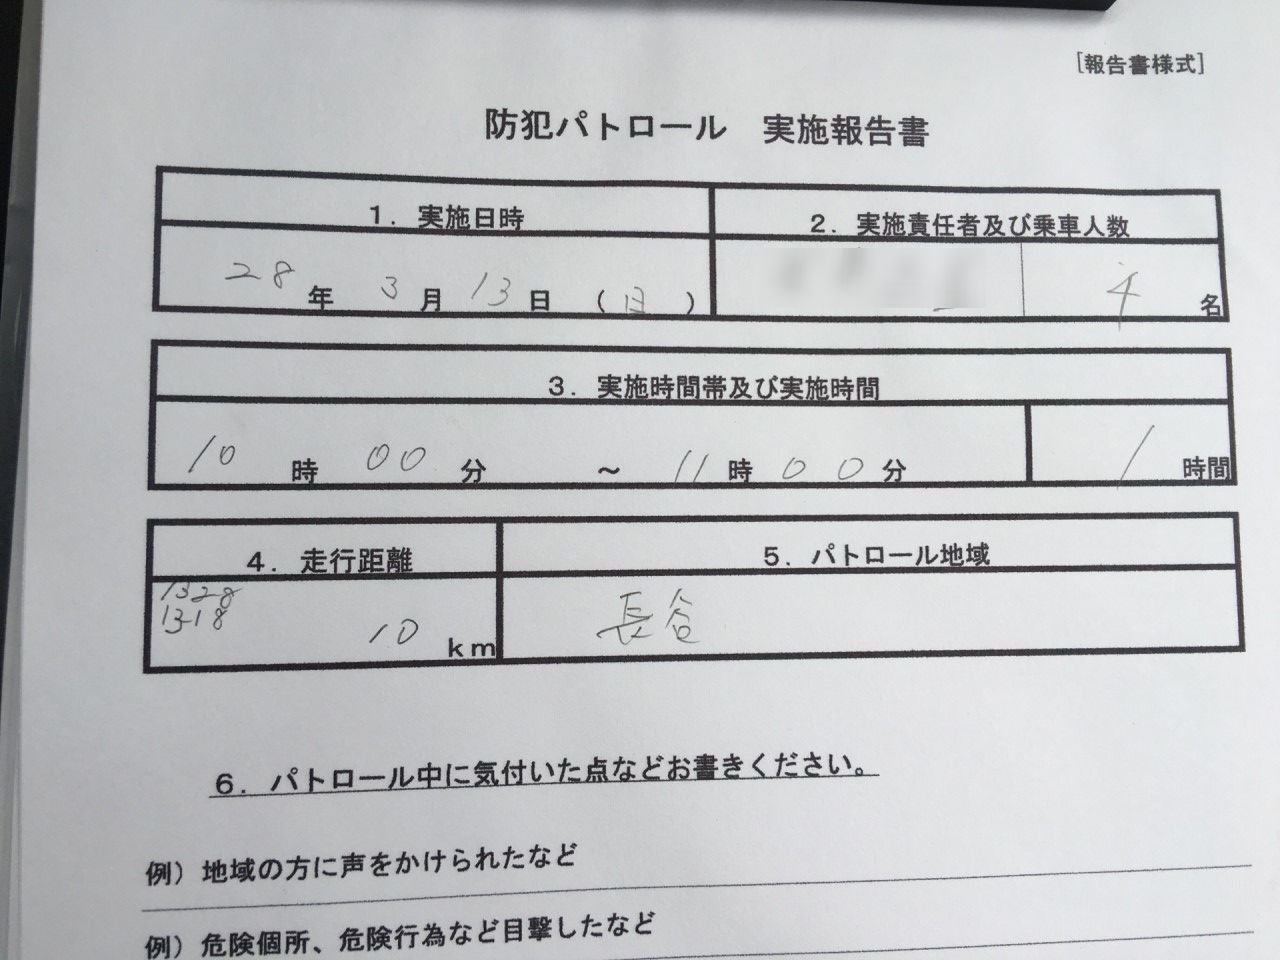 [報告書様式]
防犯パトロール 実施報告書
1．実施日時
2．実施責任者及び乗車人数
28年 3月 13日 (日)
4名
3．実施時間帯及び実施時間
10時 00分 ～ 11時 00分
1時間
4．走行距離
5．パトロール地域
1328
1318
10 km
長谷
6．パトロール中に気付いた点などお書きください。
例）地域の方に声をかけられたなど
例）危険個所、危険行為など目撃したなど